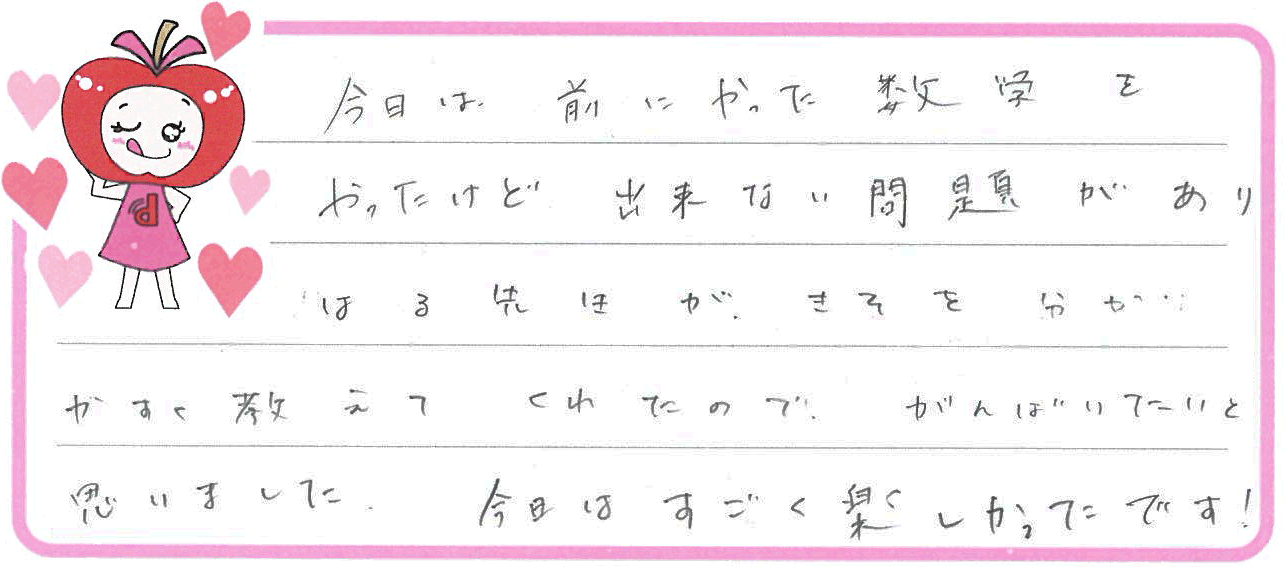 今日は、前にやった数学を
やったけど出来ない問題があり
はる先ほが、きそを分か
やすく教えてくれたので、がんばいたいと
思いました。 今日はすごく楽しかったです!